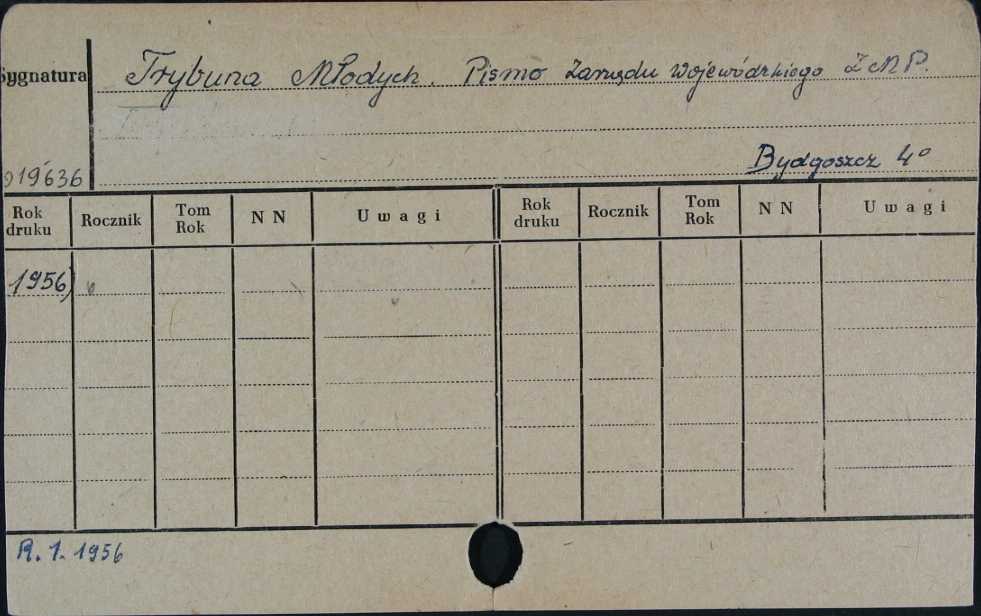 Sygnatura
Trybuna Młodych. Pismo Zarządu Wojewódzkiego ZMP.
19636
Bydgoszcz 4°
Rok druku Rocznik Tom Rok NN Uwagi Rok druku Rocznik Tom Rok NN Uwagi
1956)
R. 1. 1956